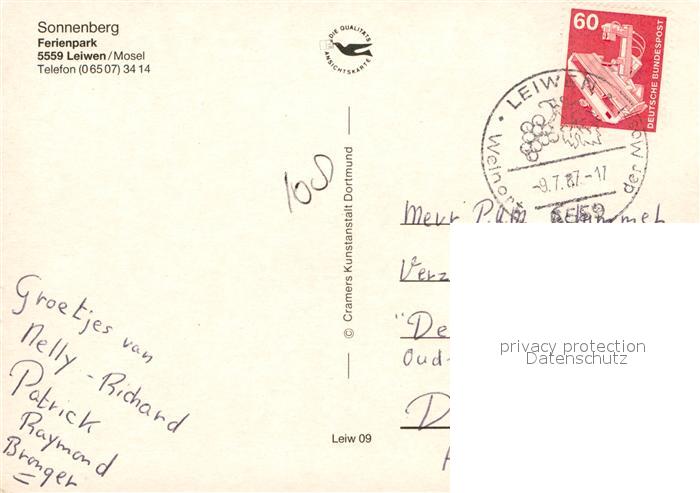 Sonnenberg
Ferienpark
5559 Leiwen/Mosel
Telefon (0 65 07) 34 14
DIE QUALITÄTS
ANSICHTSKARTE
60
DEUTSCHE BUNDESPOST
LEIWEN
Weinort der Mosel
-9.7.87.-17
5559
100
© Cramers Kunstanstalt Dortmund
Leiw 09
Groetjes van
Nelly - Richard
Patrick
Raymond
Bronger
Mevr P.v.M.
Verz
"De
Oud-
D
privacy protection
Datenschutz